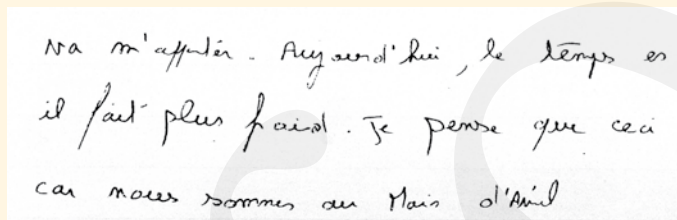 va m'apporter. Aujourd'hui, le temps es
il fait plus froid. Je pense que ceci
car nous sommes au Mois d'Avril